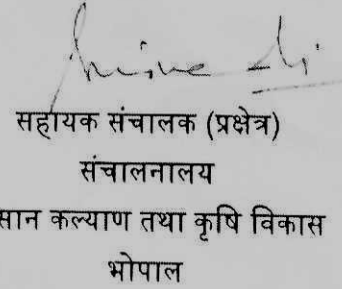 सहायक संचालक (प्रक्षेत्र)
संचालनालय
सान कल्याण तथा कृषि विकास
भोपाल